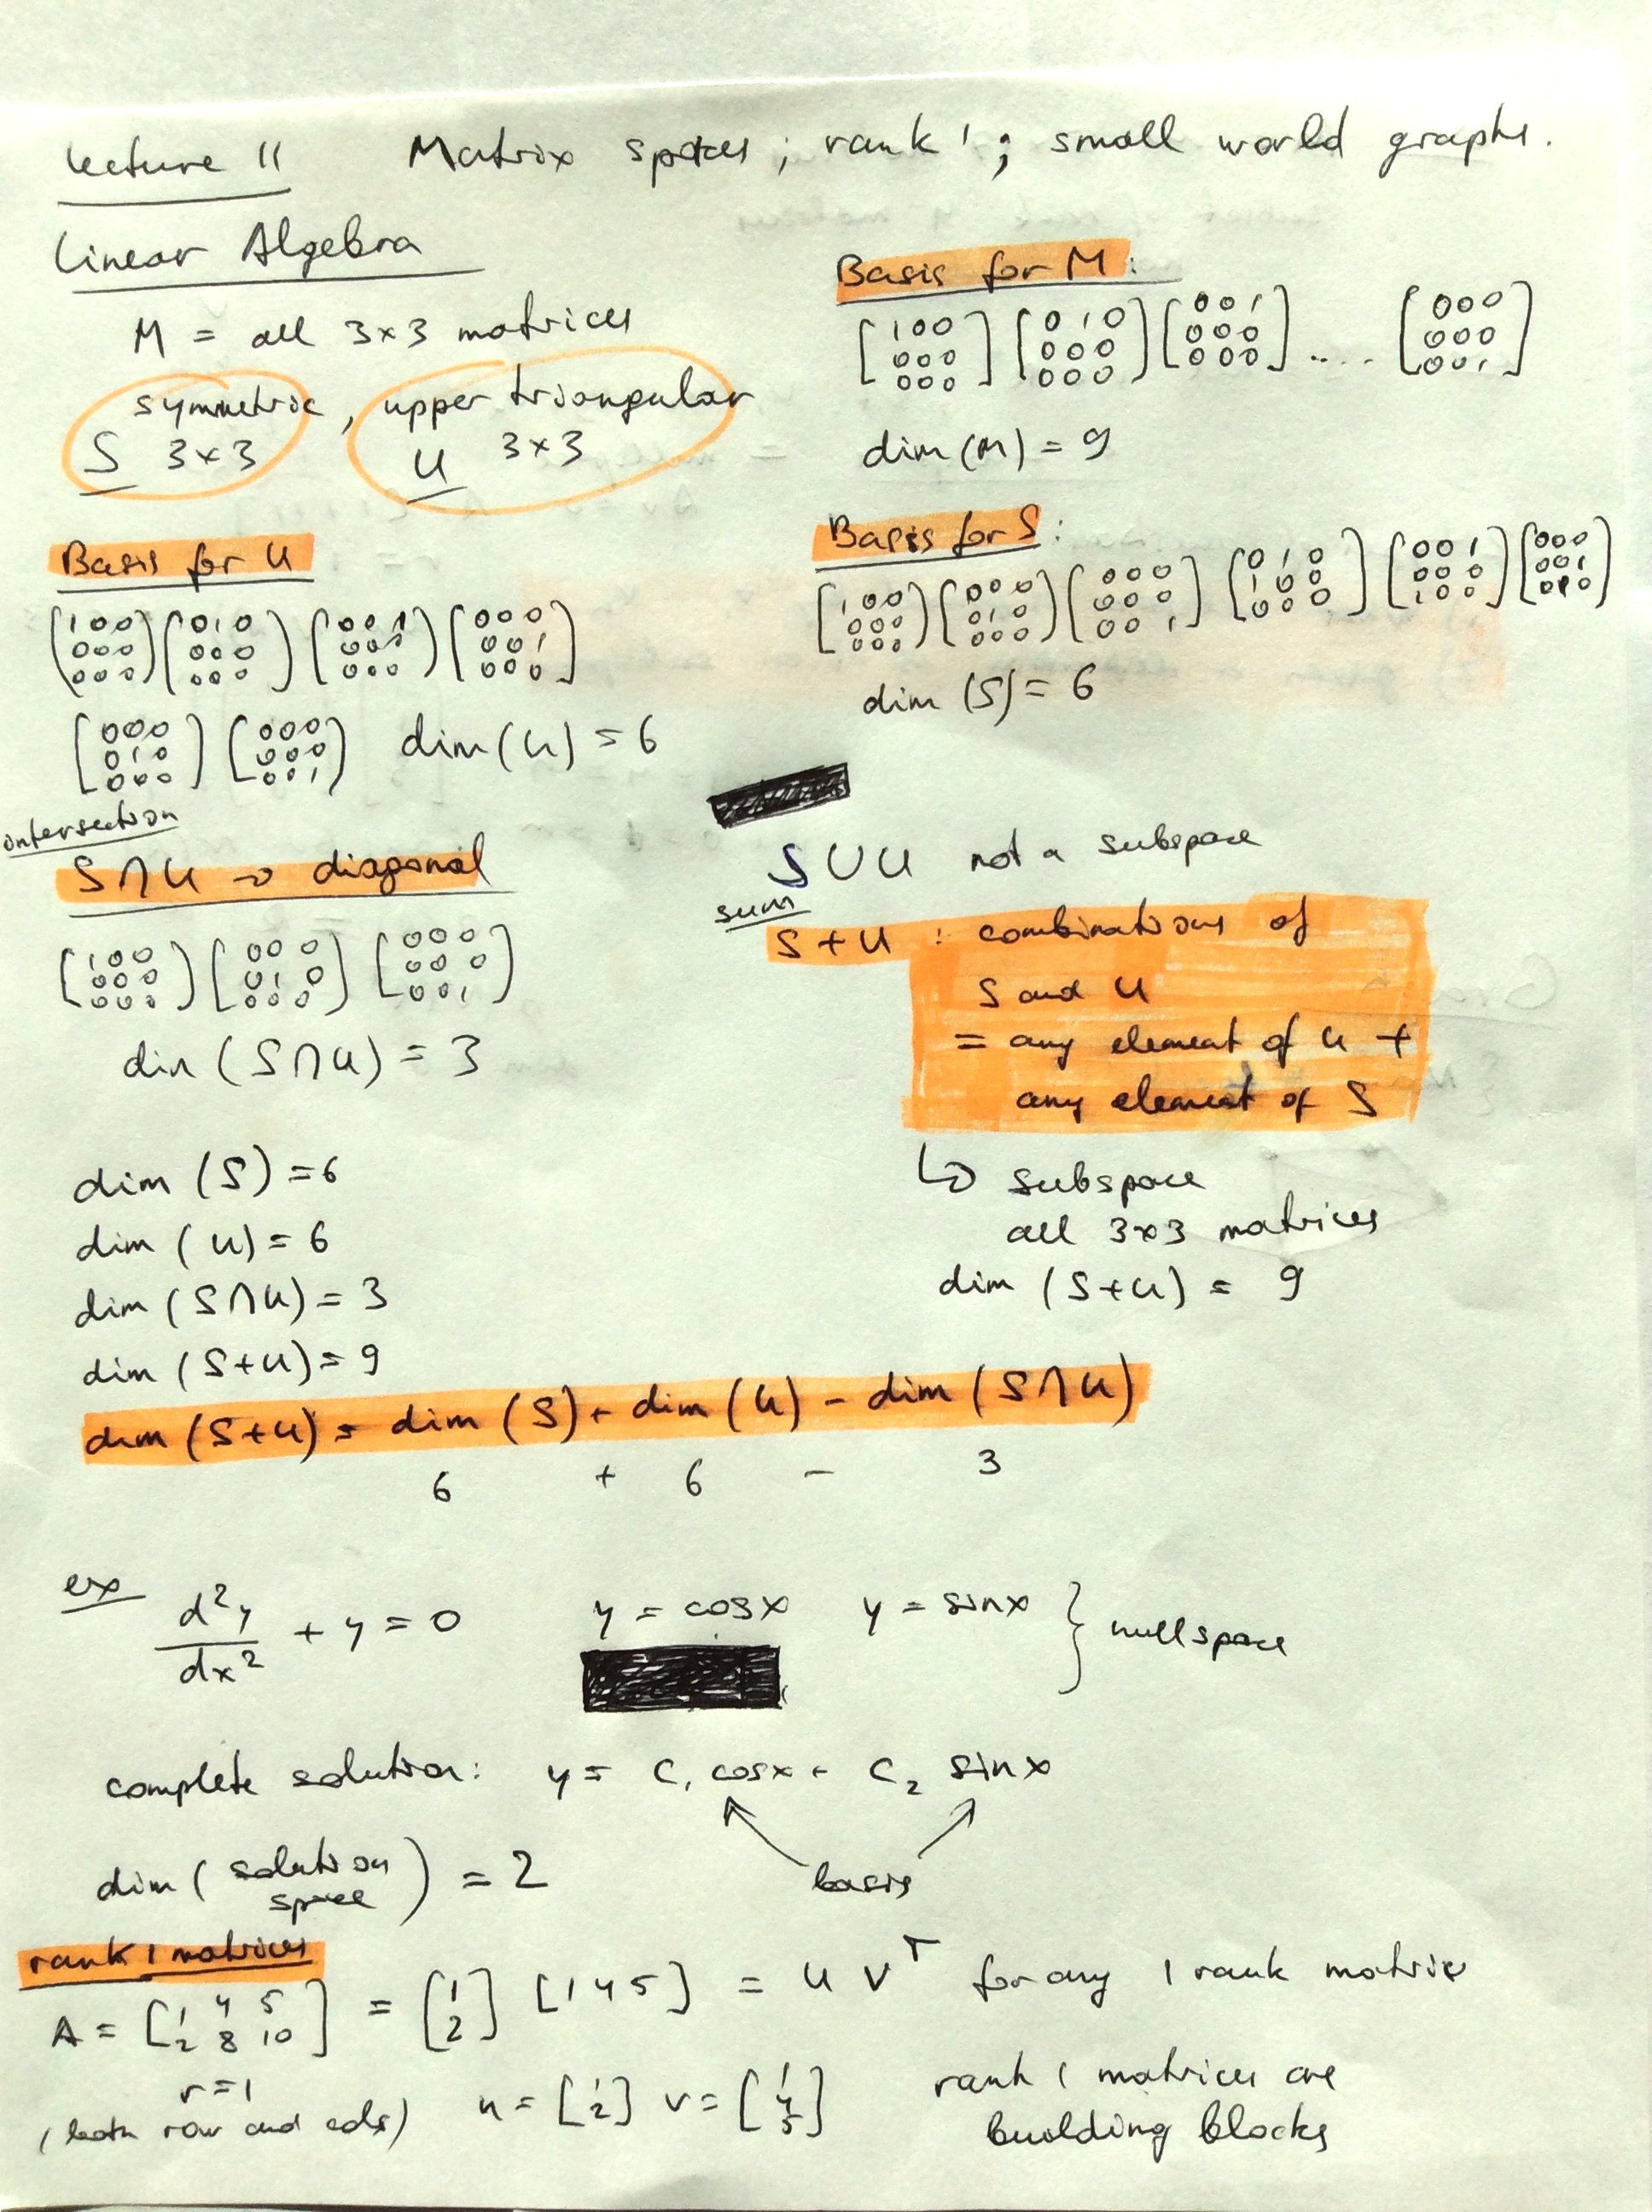 Lecture 11 Matrix spaces; rank 1; small world graphs.
Linear Algebra
M = all 3x3 matrices
symmetric, upper triangular
S 3x3 U 3x3
Basis for M:
[1 0 0 [0 1 0 [0 0 1 [0 0 0
0 0 0 0 0 0 0 0 0 0 0 0
0 0 0] 0 0 0] 0 0 0] .... 0 0 1]
dim(M) = 9
Basis for U
[1 0 0 [0 1 0 [0 0 1 [0 0 0
0 0 0 0 0 0 0 0 0 0 0 1
0 0 0] 0 0 0] 0 0 0] 0 0 0]
[0 0 0 [0 0 0
0 1 0 0 0 0
0 0 0] 0 0 1] dim(U) = 6
Basis for S:
[1 0 0 [0 0 0 [0 0 0 [0 1 0 [0 0 1 [0 0 0
0 0 0 0 1 0 0 0 0 1 0 0 0 0 0 0 0 1
0 0 0] 0 0 0] 0 0 1] 0 0 0] 1 0 0] 0 1 0]
dim (S) = 6
intersection
S∩U → diagonal
[1 0 0 [0 0 0 [0 0 0
0 0 0 0 1 0 0 0 0
0 0 0] 0 0 0] 0 0 1]
dim (S∩U) = 3
S∪U not a subspace
sum
S+U : combinations of
S and U
= any element of U +
any element of S
↳ subspace
all 3x3 matrices
dim (S+U) = 9
dim (S) = 6
dim (U) = 6
dim (S∩U) = 3
dim (S+U) = 9
dim (S+U) = dim (S) + dim (U) - dim (S∩U)
6 + 6 - 3
ex
d²y/dx² + y = 0 y = cosx y = sinx } nullspace
complete solution: y = C₁ cosx + C₂ sinx
basis
dim (solution space) = 2
rank 1 matrices
A = [1 4 5 = [1 [1 4 5] = u vᵀ for any 1 rank matrix
2 8 10] 2]
r=1
(both row and cols) u = [1 2] v = [1 4 5]
rank 1 matrices are
building blocks